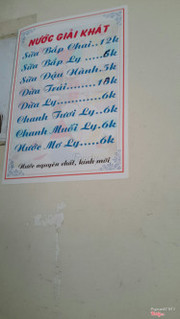 NƯỚC GIẢI KHÁT
Sữa Bắp Chai..12k
Sữa Bắp Ly ......6k
Sữa Đậu Nành.5k
Dừa Trái........18k
Dừa Ly...........6k
Chanh Tươi Ly..6k
Chanh Muối Ly.6k
Nước Mơ Ly.....6k
Nước nguyên chất, kính mời